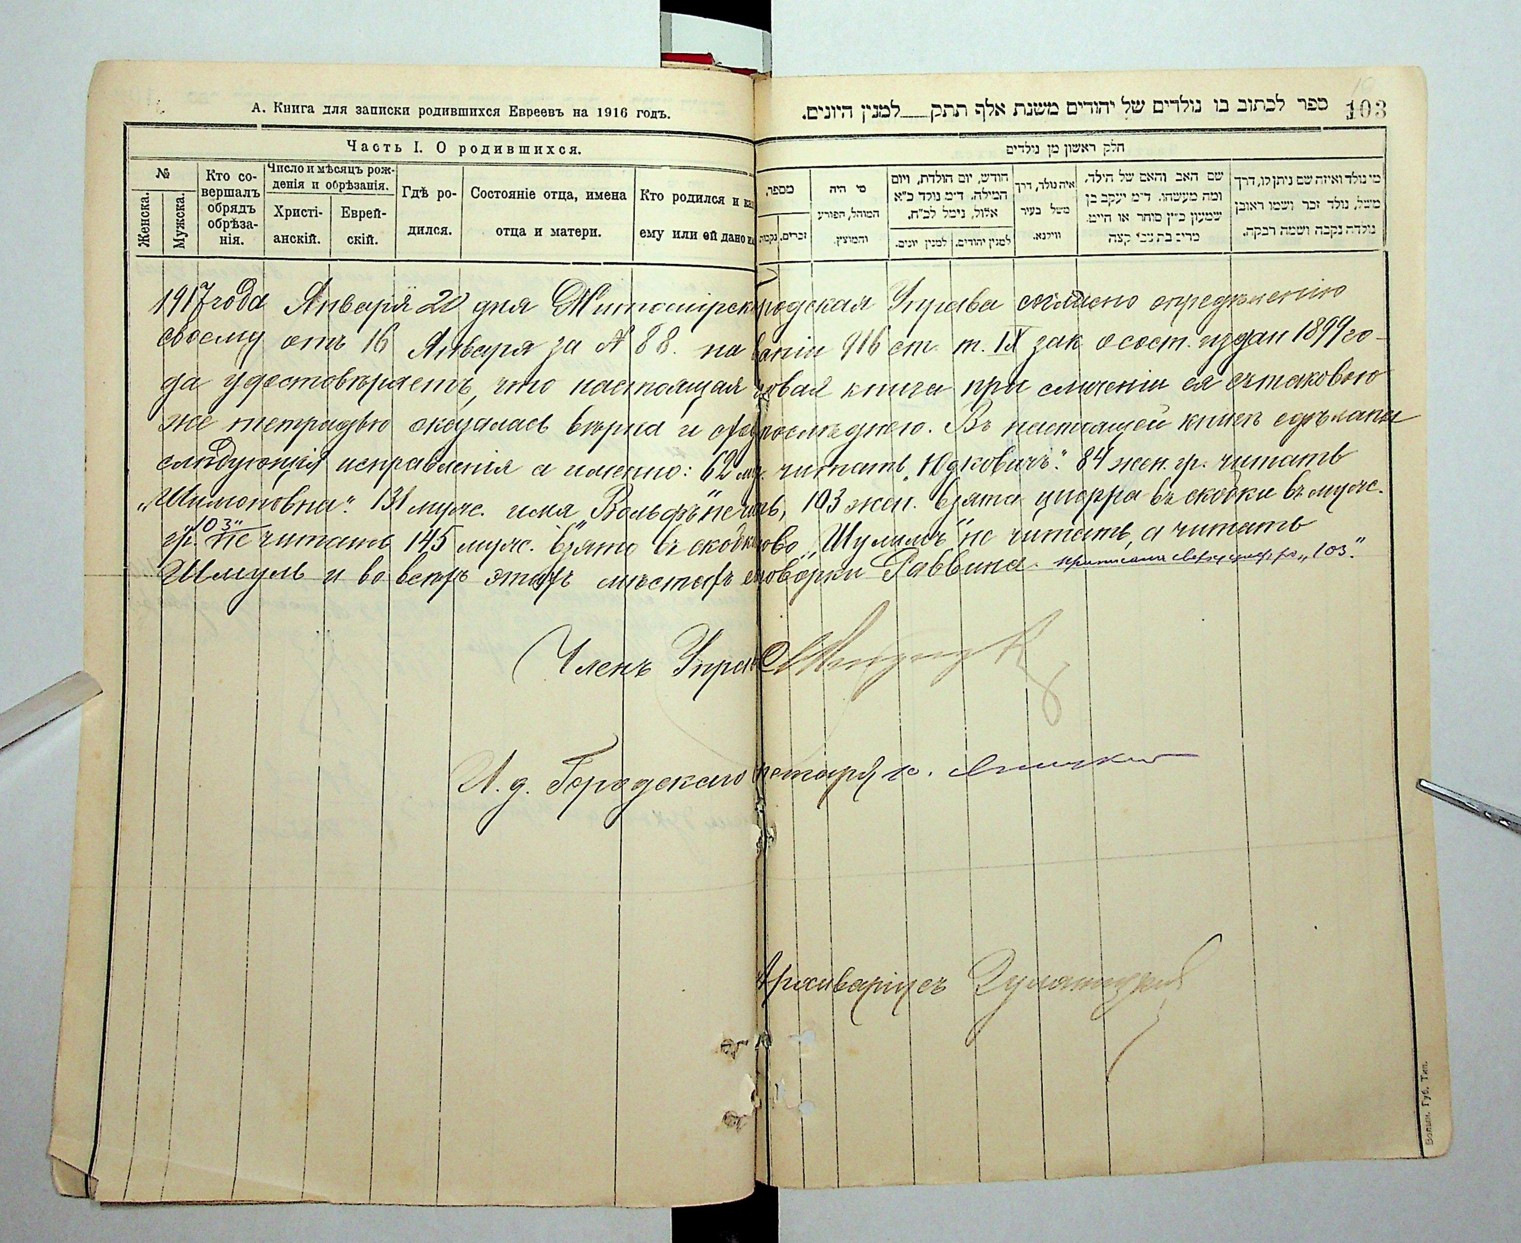 А. Книга для записки родившихся Евреевъ на 1916 годъ.
Часть I. О родившихся.
№
Женска.
Мужска.
Кто со-
вершалъ
обрядъ
обрѣза-
нія.
Число и мѣсяцъ рож-
денія и обрѣзанія.
Христі-
анскій.
Еврей-
скій.
Гдѣ ро-
дился.
Состояніе отца, имена
отца и матери.
Кто родился и
ему или ей дано
ספר לכתוב בו נולדים של יהודים משנת אלף תתק למנין היונים.
103
חלק ראשון מן נולדים
מספר,
זכרים.
נקבות
מי היה
המוהל, הפורע
והמוצץ.
חודש, יום הולדת, ויום
המילה. ד״מ נולד כ״א
אלול, נימל לכ״ח.
למנין יהודים.
למנין יונים.
איה נולד, דרך
משל בעיר
ווילנא.
שם האב והאם של הילד,
ומה מעשהו. ד״מ יעקב בן
שמעון כ״ץ סוחר או חייט.
מרים בת צבי קצה
מי נולד ואיזה שם ניתן לו, דרך
משל, נולד זכר ושמו ראובן
נולדה נקבה ושמה רבקה.
1917 года Января 20 дня Житомірск родская Управа согласно опредѣленію
своему отъ 16 Января за № 88. на ваніи 916 ст. т. IX зак о сост. издан 1899 го-
да удостовѣряетъ, что настоящая овая книга при сличеніи ея съ таковою
же тетрадью оказалась вѣрна и послѣднею. Въ настоящей книгѣ сдѣланы
слѣдующія исправленія а именно: 62 муж. читать „Юдковичъ“. 84 жен. гр. читать
„Шимоновна“. 131 мужс. имя „Вольфъ“ не читать, 103 жен. взята цифра въ скобки въ мужс.
гр. „103“ не читать, 145 мужс. взято въ скобки слово „Шулимъ“ не читать, а читать
Шмуль и во всѣхъ этихъ мѣстахъ оговорки Раввина. приписана сверху цифра „103“.
Членъ Управы
И. д. Городского
Архиваріусъ
Волын. Губ. Тип.